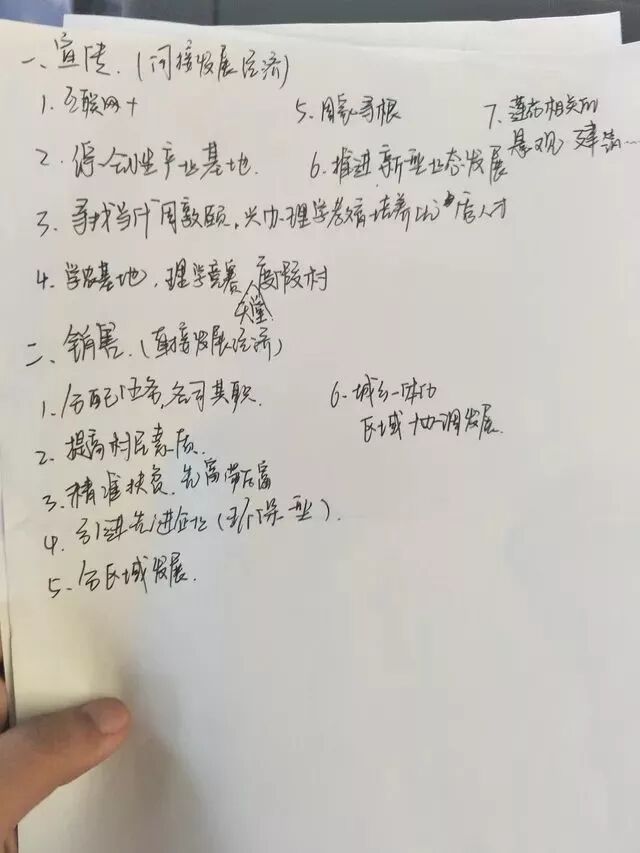 一、宣传.(间接发展经济)
1. 互联网+
5. 周家寻根
7. 莲花相关的
景观 建筑…
2. 综合创生产业基地.
6. 推进新型业态发展
3. 寻找当代周敦颐,兴办理学教育培养后人才
4. 学农基地,理学竞赛,度假村
人
天堂
二、销售.(直接发展经济)
1. 分配任务,各司其职.
6. 城乡一体化
区域协调发展.
2. 提高村民素质.
3. 精准扶贫.先富带后富
4. 引进先进企业(环保型).
5. 分区域发展.